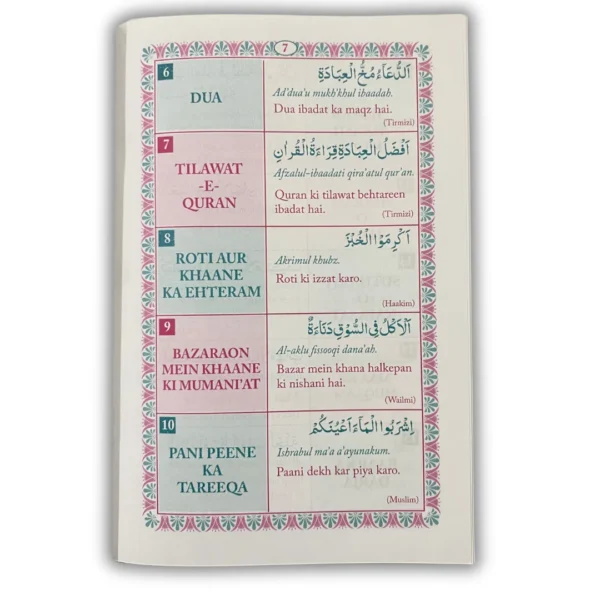 7
6
DUA
اَلدُّعَاءُ مُخُّ الْعِبَادَةِ
Ad'dua'u mukh'khul ibaadah.
Dua ibadat ka maqz hai.
(Tirmizi)
7
TILAWAT
-E-
QURAN
اَفْضَلُ الْعِبَادَةِ قِرَاءَةُ الْقُرْاٰنِ
Afzalul-ibaadati qira'atul qur'an.
Quran ki tilawat behtareen
ibadat hai.
(Tirmizi)
8
ROTI AUR
KHAANE
KA EHTERAM
اَكْرِمُوْا الْخُبْزَ
Akrimul khubz.
Roti ki izzat karo.
(Haakim)
9
BAZARAON
MEIN KHAANE
KI MUMANI'AT
اَلْاَكْلُ فِي السُّوْقِ دَنَاءَةٌ
Al-aklu fissooqi dana'ah.
Bazar mein khana halkepan
ki nishani hai.
(Wailmi)
10
PANI PEENE
KA
TAREEQA
اِشْرَبُوا الْمَاءَ اَعْيُنَكُمْ
Ishrabul ma'a a'ayunakum.
Paani dekh kar piya karo.
(Muslim)